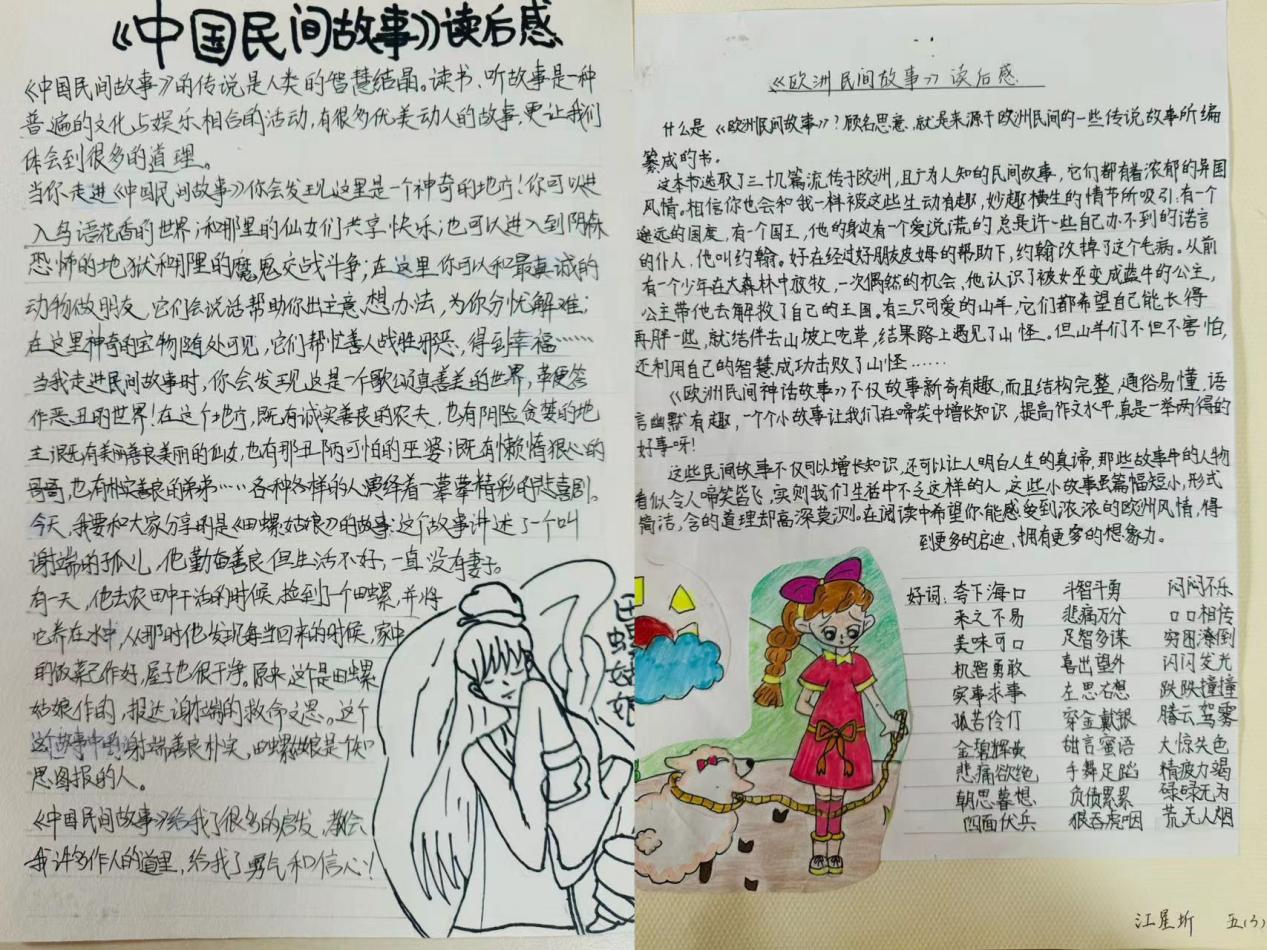 《中国民间故事》读后感
《中国民间故事》的传说是人类的智慧结晶。读书、听故事是一种
普遍的文化与娱乐相合的活动,有很多优美动人的故事,更让我们
体会到很多的道理。
当你走进《中国民间故事》你会发现这里是一个神奇的地方!你可以进
入鸟语花香的世界;和那里的仙女们共享快乐;也可以进入到阴森
恐怖的地狱和那里的魔鬼交战斗争;在这里你可以和最真诚的
动物做朋友,它们会说话帮助你出主意、想办法,为你分忧解难;
在这里神奇的宝物随处可见,它们帮忙善人战胜邪恶,得到幸福……
当我走进民间故事时,你会发现这是一个歌颂真善美的世界,鞭笞
作恶丑的世界!在这个地方,既有诚实善良的农夫,也有阴险贪婪的地
主;既有美丽善良美丽的仙女,也有那丑陋可怕的巫婆;既有懒惰狠心的
哥哥,也有朴实善良的弟弟……各种各样的人演绎着一幕幕精彩的悲喜剧。
今天,我要和大家分享的是《田螺姑娘》的故事:这个故事讲述了一个叫
谢端的孤儿,他勤奋善良但生活不好,一直没有妻子。
有一天,他去农田中干活的时候,捡到了一个田螺,并将
它养在水中,从那时他发现每当回来的时候,家中
的饭菜已作好,屋子也很干净。原来这个是田螺
姑娘作的,报达谢端的救命之恩。这个
这个故事中的谢端善良朴实,田螺姑娘是个知
恩图报的人。
《中国民间故事》给我了很多的启发,教会
我许多作人的道里,给我了勇气和信心!
田螺姑娘
《欧洲民间故事》读后感
什么是《欧洲民间故事》?顾名思意,就是来源于欧洲民间的一些传说故事所编
纂成的书。
这本书选取了三十几篇流传于欧洲,且广为人知的民间故事,它们都有着浓郁的异国
风情。相信你也会和我一样被这些生动有趣,妙趣横生的情节所吸引:有一个
遥远的国度,有一个国王,他的身边有一个爱说谎的总是许一些自己办不到的诺言
的仆人,他叫约翰。好在经过好朋友皮姆的帮助下,约翰改掉了这个毛病。从前
有一个少年在大森林中放牧,一次偶然的机会,他认识了被女巫变成蓝牛的公主,
公主带他去解救了自己的王国。有三只可爱的山羊,它们都希望自己能长得
再胖一些,就结伴去山坡上吃草,结果路上遇见了山怪。但山羊们不但不害怕,
还利用自己的智慧成功击败了山怪……
《欧洲民间神话故事》不仅故事新奇有趣,而且结构完整,通俗易懂,语
言幽默有趣,一个个小故事让我们在啼笑中增长知识,提高作文水平,真是一举两得的
好事呀!
这些民间故事不仅可以增长知识,还可以让人明白人生的真谛,那些故事中的人物
看似令人啼笑皆飞,实则我们生活中不乏这样的人,这些小故事虽篇幅短小,形式
简洁,含的道理却高深莫测。在阅读中希望你能感受到浓浓的欧洲风情,得
到更多的启迪,拥有更多的想象力。
好词:夸下海口 斗智斗勇 闷闷不乐
来之不易 悲痛万分 口口相传
美味可口 足智多谋 穷困潦倒
机智勇敢 喜出望外 闪闪发光
实事求事 左思右想 跌跌撞撞
孤苦伶仃 穿金戴银 腾云驾雾
金碧辉煌 甜言蜜语 大惊失色
悲痛欲绝 手舞足蹈 精疲力竭
朝思暮想 负债累累 碌碌无为
四面伏兵 狼吞虎咽 荒无人烟
江星圻 五(3)